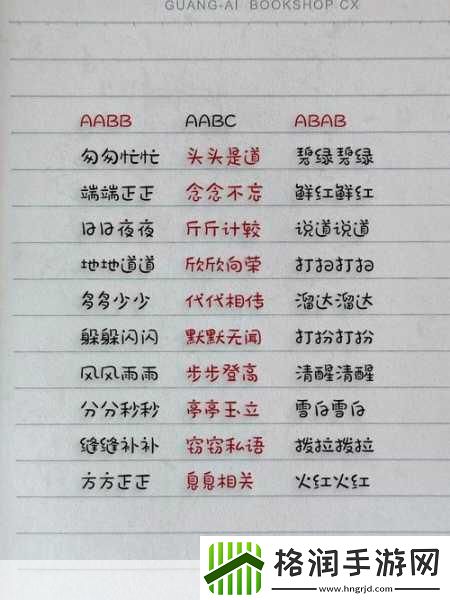 GUANG-AI BOOKSHOP CX
AABB AABC ABAB
匆匆忙忙 头头是道 碧绿碧绿
端端正正 念念不忘 鲜红鲜红
日日夜夜 斤斤计较 说道说道
地地道道 欣欣向荣 打扫打扫
多多少少 代代相传 溜达溜达
躲躲闪闪 默默无闻 打扮打扮
风风雨雨 步步登高 清醒清醒
分分秒秒 亭亭玉立 雪白雪白
缝缝补补 窃窃私语 拨拉拨拉
方方正正 息息相关 火红火红
格润手游网
www.hngrjd.com